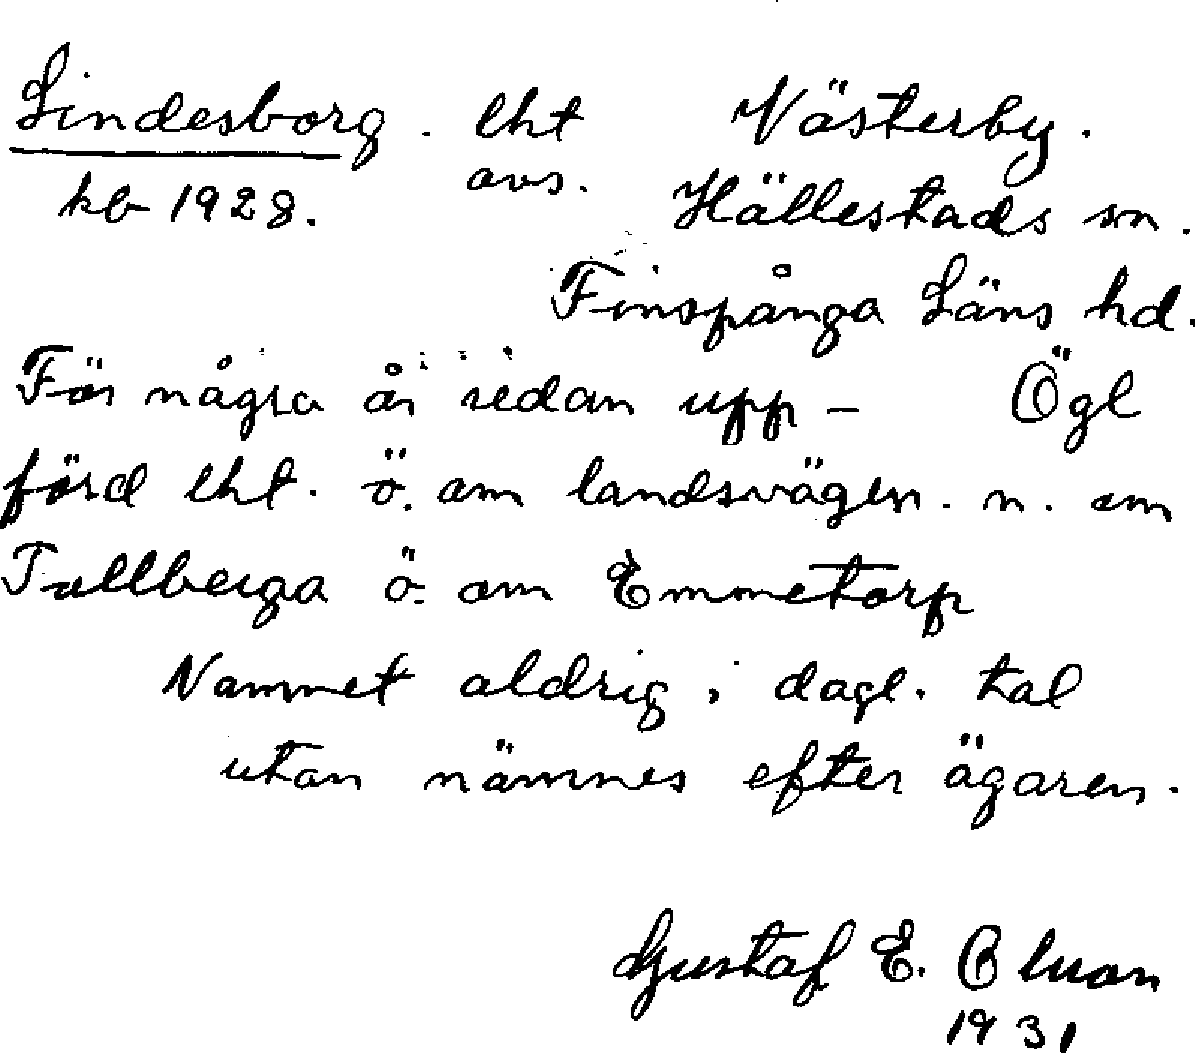 Lindesborg. lht Västerby.
kb 1928. avs. Hällestads sn.
Finspånga Läns hd.
För några år sedan upp- Ögl
förd lht. ö. om landsvägen. n. om
Tallberga ö. om Emmetorp
Namnet aldrig i dagl. tal
utan nämnes efter ägaren.
Gustaf E.
1931